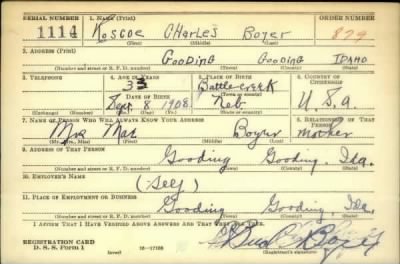 SERIAL NUMBER 1. NAME (Print) ORDER NUMBER
1114 Roscoe CHarles Boyer 879
(First) (Middle) (Last)
2. ADDRESS (Print)
GOODING GOODING IDAHO
(Number and street or R. F. D. number) (Town) (County) (State)
3. TELEPHONE 4. AGE IN YEARS 5. PLACE OF BIRTH 6. COUNTRY OF CITIZENSHIP
33 Battlecreek
DATE OF BIRTH (Town or county)
Sept 8 1908 Neb. U.S.a.
(Exchange) (Number) (Mo.) (Day) (Yr.) (State or country)
7. NAME OF PERSON WHO WILL ALWAYS KNOW YOUR ADDRESS 8. RELATIONSHIP OF THAT PERSON
Mrs Mae Boyer mother
(Mr., Mrs., Miss) (First) (Middle) (Last)
9. ADDRESS OF THAT PERSON
Gooding Gooding, Ida.
(Number and street or R. F. D. number) (Town) (County) (State)
10. EMPLOYER'S NAME
(Self)
11. PLACE OF EMPLOYMENT OR BUSINESS
Gooding Gooding, Ida.
(Number and street or R. F. D. number) (Town) (County) (State)
I AFFIRM THAT I HAVE VERIFIED ABOVE ANSWERS AND THAT THEY ARE TRUE.
REGISTRATION CARD
D. S. S. Form 1 (over) (Registrant's signature)